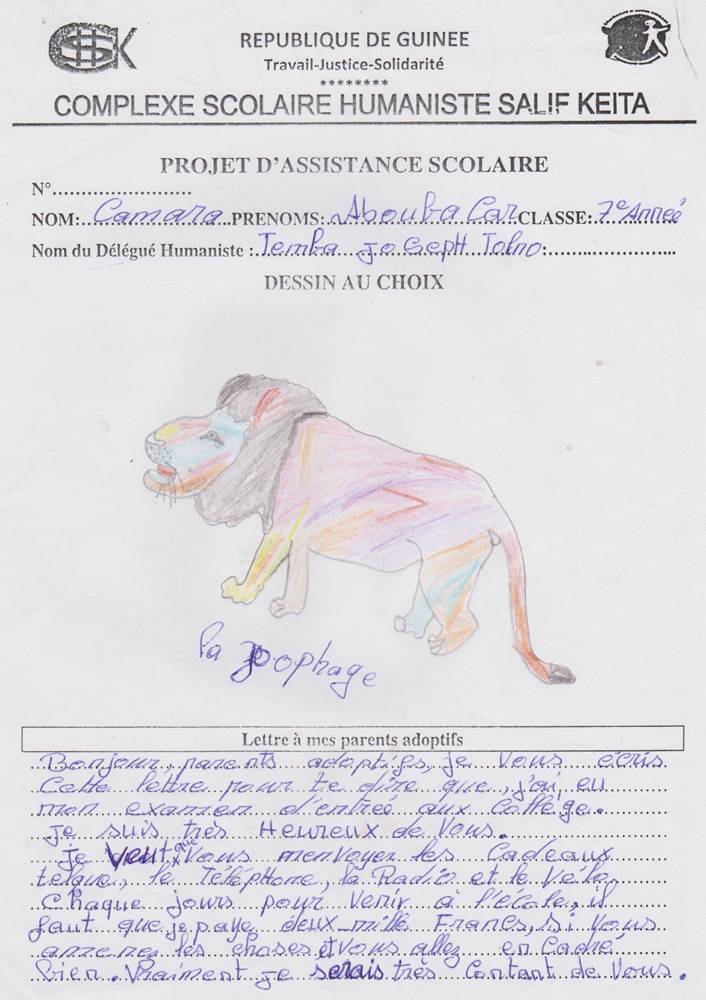 HSK
REPUBLIQUE DE GUINEE
Travail-Justice-Solidarité
********
COMPLEXE SCOLAIRE HUMANISTE SALIF KEITA
PROJET D'ASSISTANCE SCOLAIRE
N°.......................
NOM: Camara PRENOMS: Abouba Car CLASSE: 7e Anneé
Nom du Délégué Humaniste : Temba Joseph Tolno :
DESSIN AU CHOIX
la zoophage
Lettre à mes parents adoptifs
Bonjour, parents adoptifs, je Vous écris
Cette lettre pour te dire que, j'ai eu
mon examen d'entreé aux Collège.
Je suis très Heureux de Vous.
Je Veut que Vous m'envoyer les Cadeaux
telque, le Téléphone, la Radio et le Vélo.
Chaque jours pour Venir à l'école, il
faut que je paye deux-mille Francs, si Vous
amenez les choses et vous allez en Cadré
bien. Vraiment je serais très Contant de Vous.